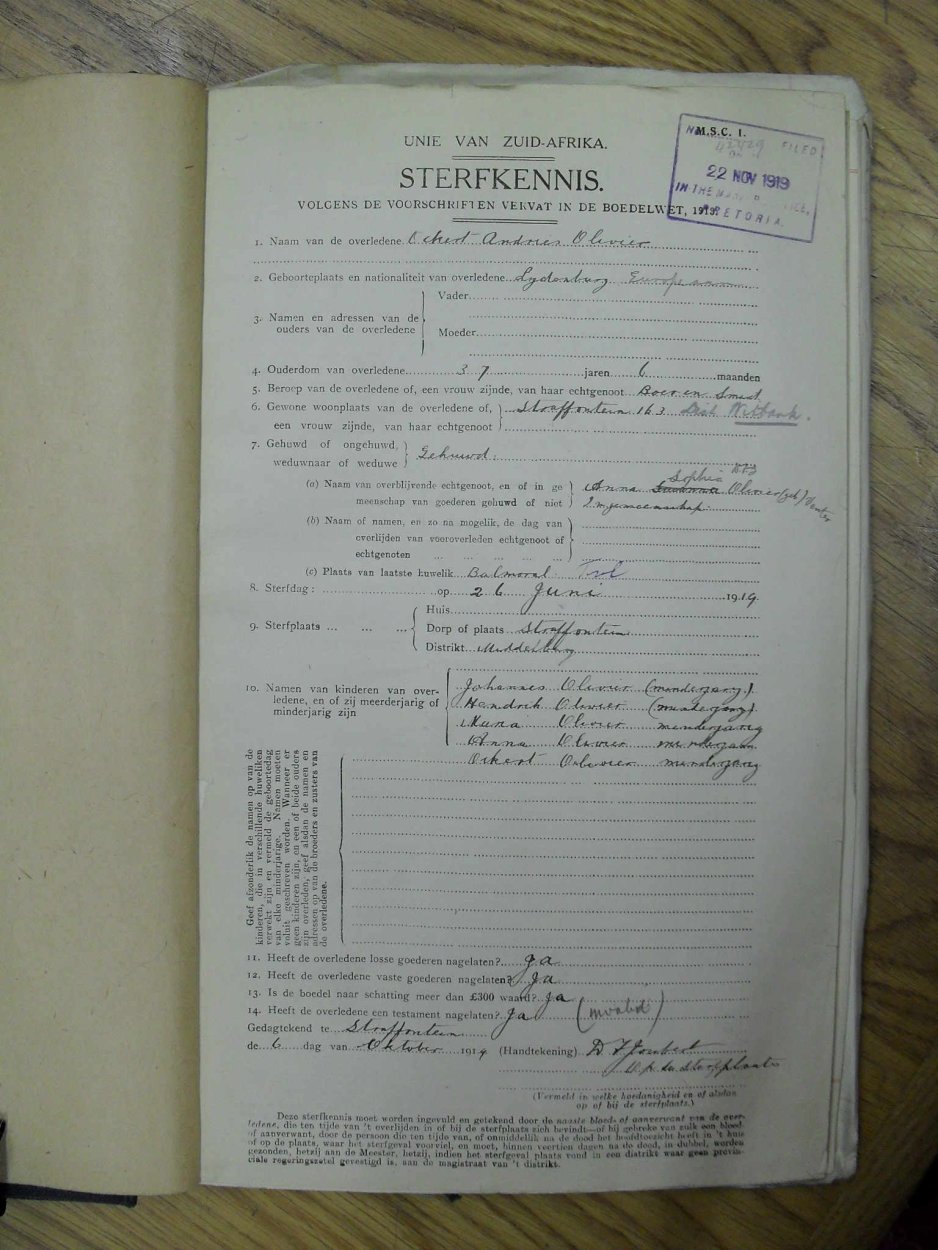 M.S.C. 1.
FILED
22 NOV 1919
IN THE
PRETORIA
UNIE VAN ZUID-AFRIKA.
STERFKENNIS.
VOLGENS DE VOORSCHRIFTEN VERVAT IN DE BOEDELWET, 1913.
1. Naam van de overledene. Ockert Andries Olivier
2. Geboorteplaats en nationaliteit van overledene. Lydenburg Europeaan
3. Namen en adressen van de ouders van de overledene
Vader
Moeder
4. Ouderdom van overledene 37 jaren 6 maanden
5. Beroep van de overledene of, een vrouw zijnde, van haar echtgenoot Boer en Smid
6. Gewone woonplaats van de overledene of, een vrouw zijnde, van haar echtgenoot
Straffontein 163 Dist Witbank.
7. Gehuwd of ongehuwd, weduwnaar of weduwe
Gehuwd.
(a) Naam van overblijvende echtgenoot, en of in ge meenschap van goederen gehuwd of niet
DFJ
Sophia
Anna Susanna Olivier (geb) Venter
In gemeenschap
(b) Naam of namen, en zo na mogelik, de dag van
overlijden van vooroverleden echtgenoot of
echtgenoten ... ... ... ...
(c) Plaats van laatste huwelik Balmoral Tvl
8. Sterfdag: op 26 Juni 1919
9. Sterfplaats ... ... ...
Huis
Dorp of plaats Straffontein
Distrikt Middelburg
10. Namen van kinderen van over-
ledene, en of zij meerderjarig of
minderjarig zijn
Johannes Olivier (minderjarig)
Hendrik Olivier (minderjarig)
Maria Olivier minderjarig
Anna Olivier minderjarig
Ockert Olivier minderjarig
Geef afzonderlik de namen op van de
kinderen, die in verschillende huweliken
verwekt zijn en vermeld de geboortedag
van elke minderjarige. Namen moeten
voluit geschreven worden. Wanneer er
geen kinderen zijn, en een of beide ouders
zijn overleden, geef alsdan de namen en
adressen op van de broeders en zusters van
de overledene.
11. Heeft de overledene losse goederen nagelaten? Ja
12. Heeft de overledene vaste goederen nagelaten? Ja
13. Is de boedel naar schatting meer dan £300 waard? Ja
14. Heeft de overledene een testament nagelaten? Ja (invalid)
Gedagtekend te Straffontein
de 6 dag van Oktober 1919 (Handtekening) D F Joubert
(Vermeld in welke hoedanigheid en of alsdan
op of bij de sterfplaats.)
Deze sterfkennis moet worden ingevuld en getekend door de naaste bloed- of aanverwant van de over-
ledene, die ten tijde van 't overlijden in of bij de sterfplaats zich bevindt—of bij gebreke van zulk een bloed-
of aanverwant, door de persoon die ten tijde van, of onmiddelik na de dood het hoofdtoezicht heeft in 't huis
of op de plaats, waar het sterfgeval voorviel, en moet, binnen veertien dagen na de dood, in dubbel, worden
gezonden, hetzij aan de Meester, hetzij, indien het sterfgeval plaats vond in een distrikt waar geen provin-
ciale regeringszetel gevestigd is, aan de magistraat van 't distrikt.